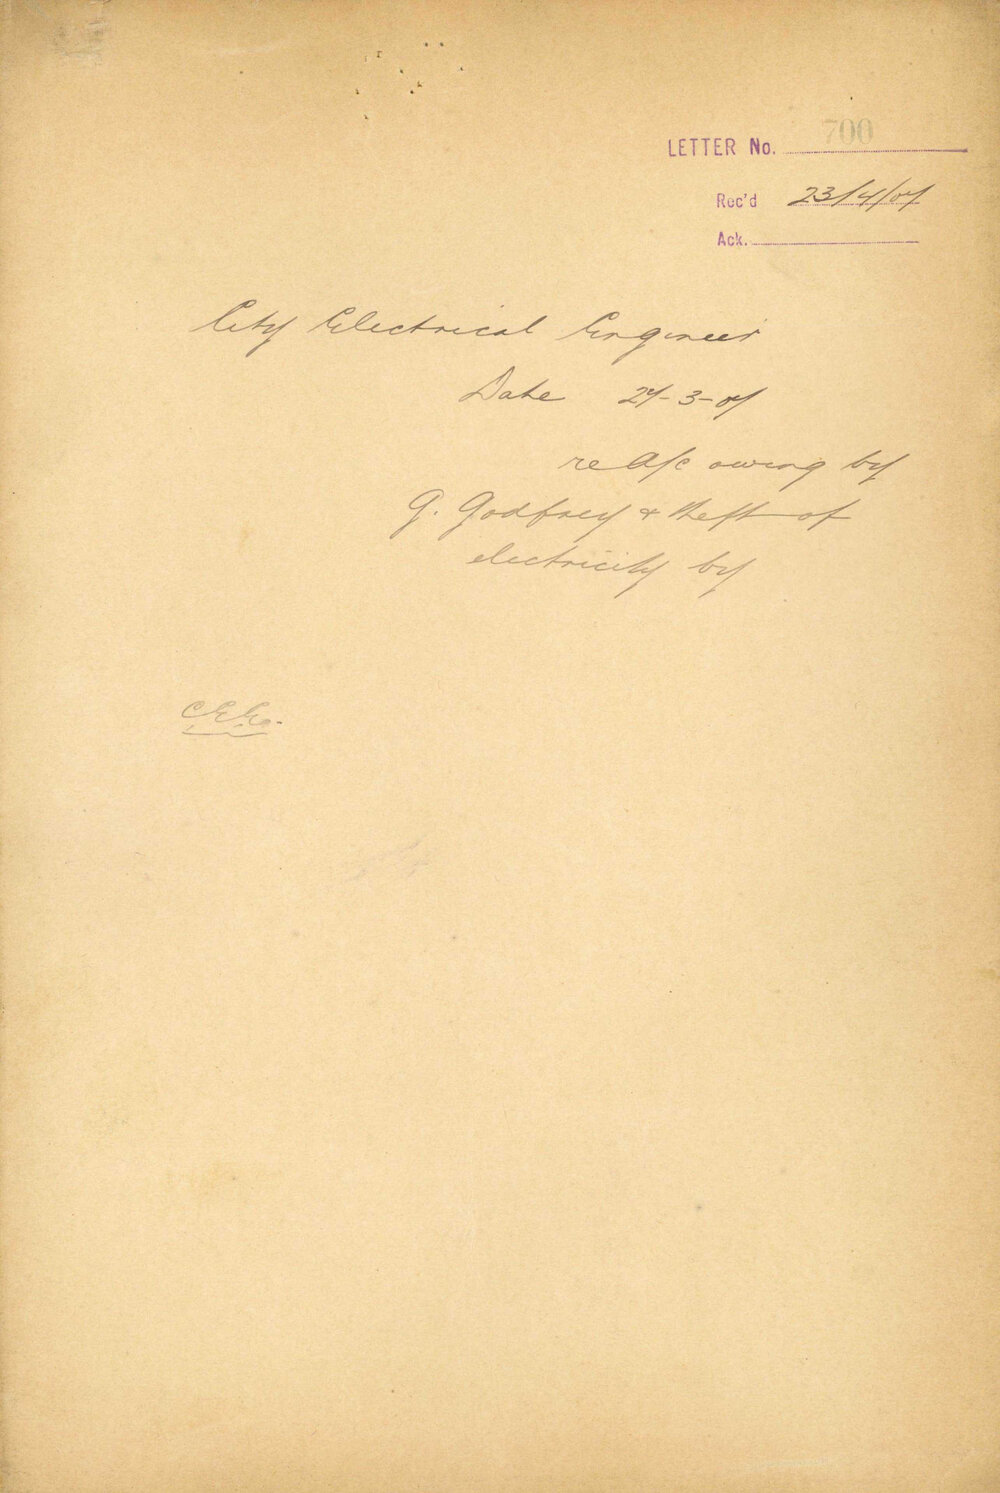 LETTER No. 700
Rec'd 23/4/07
Ack.
City Electrical Engineer
Date 27-3-07
re A/c owing by
G. Godfrey & theft of
electricity by
C.E.E.